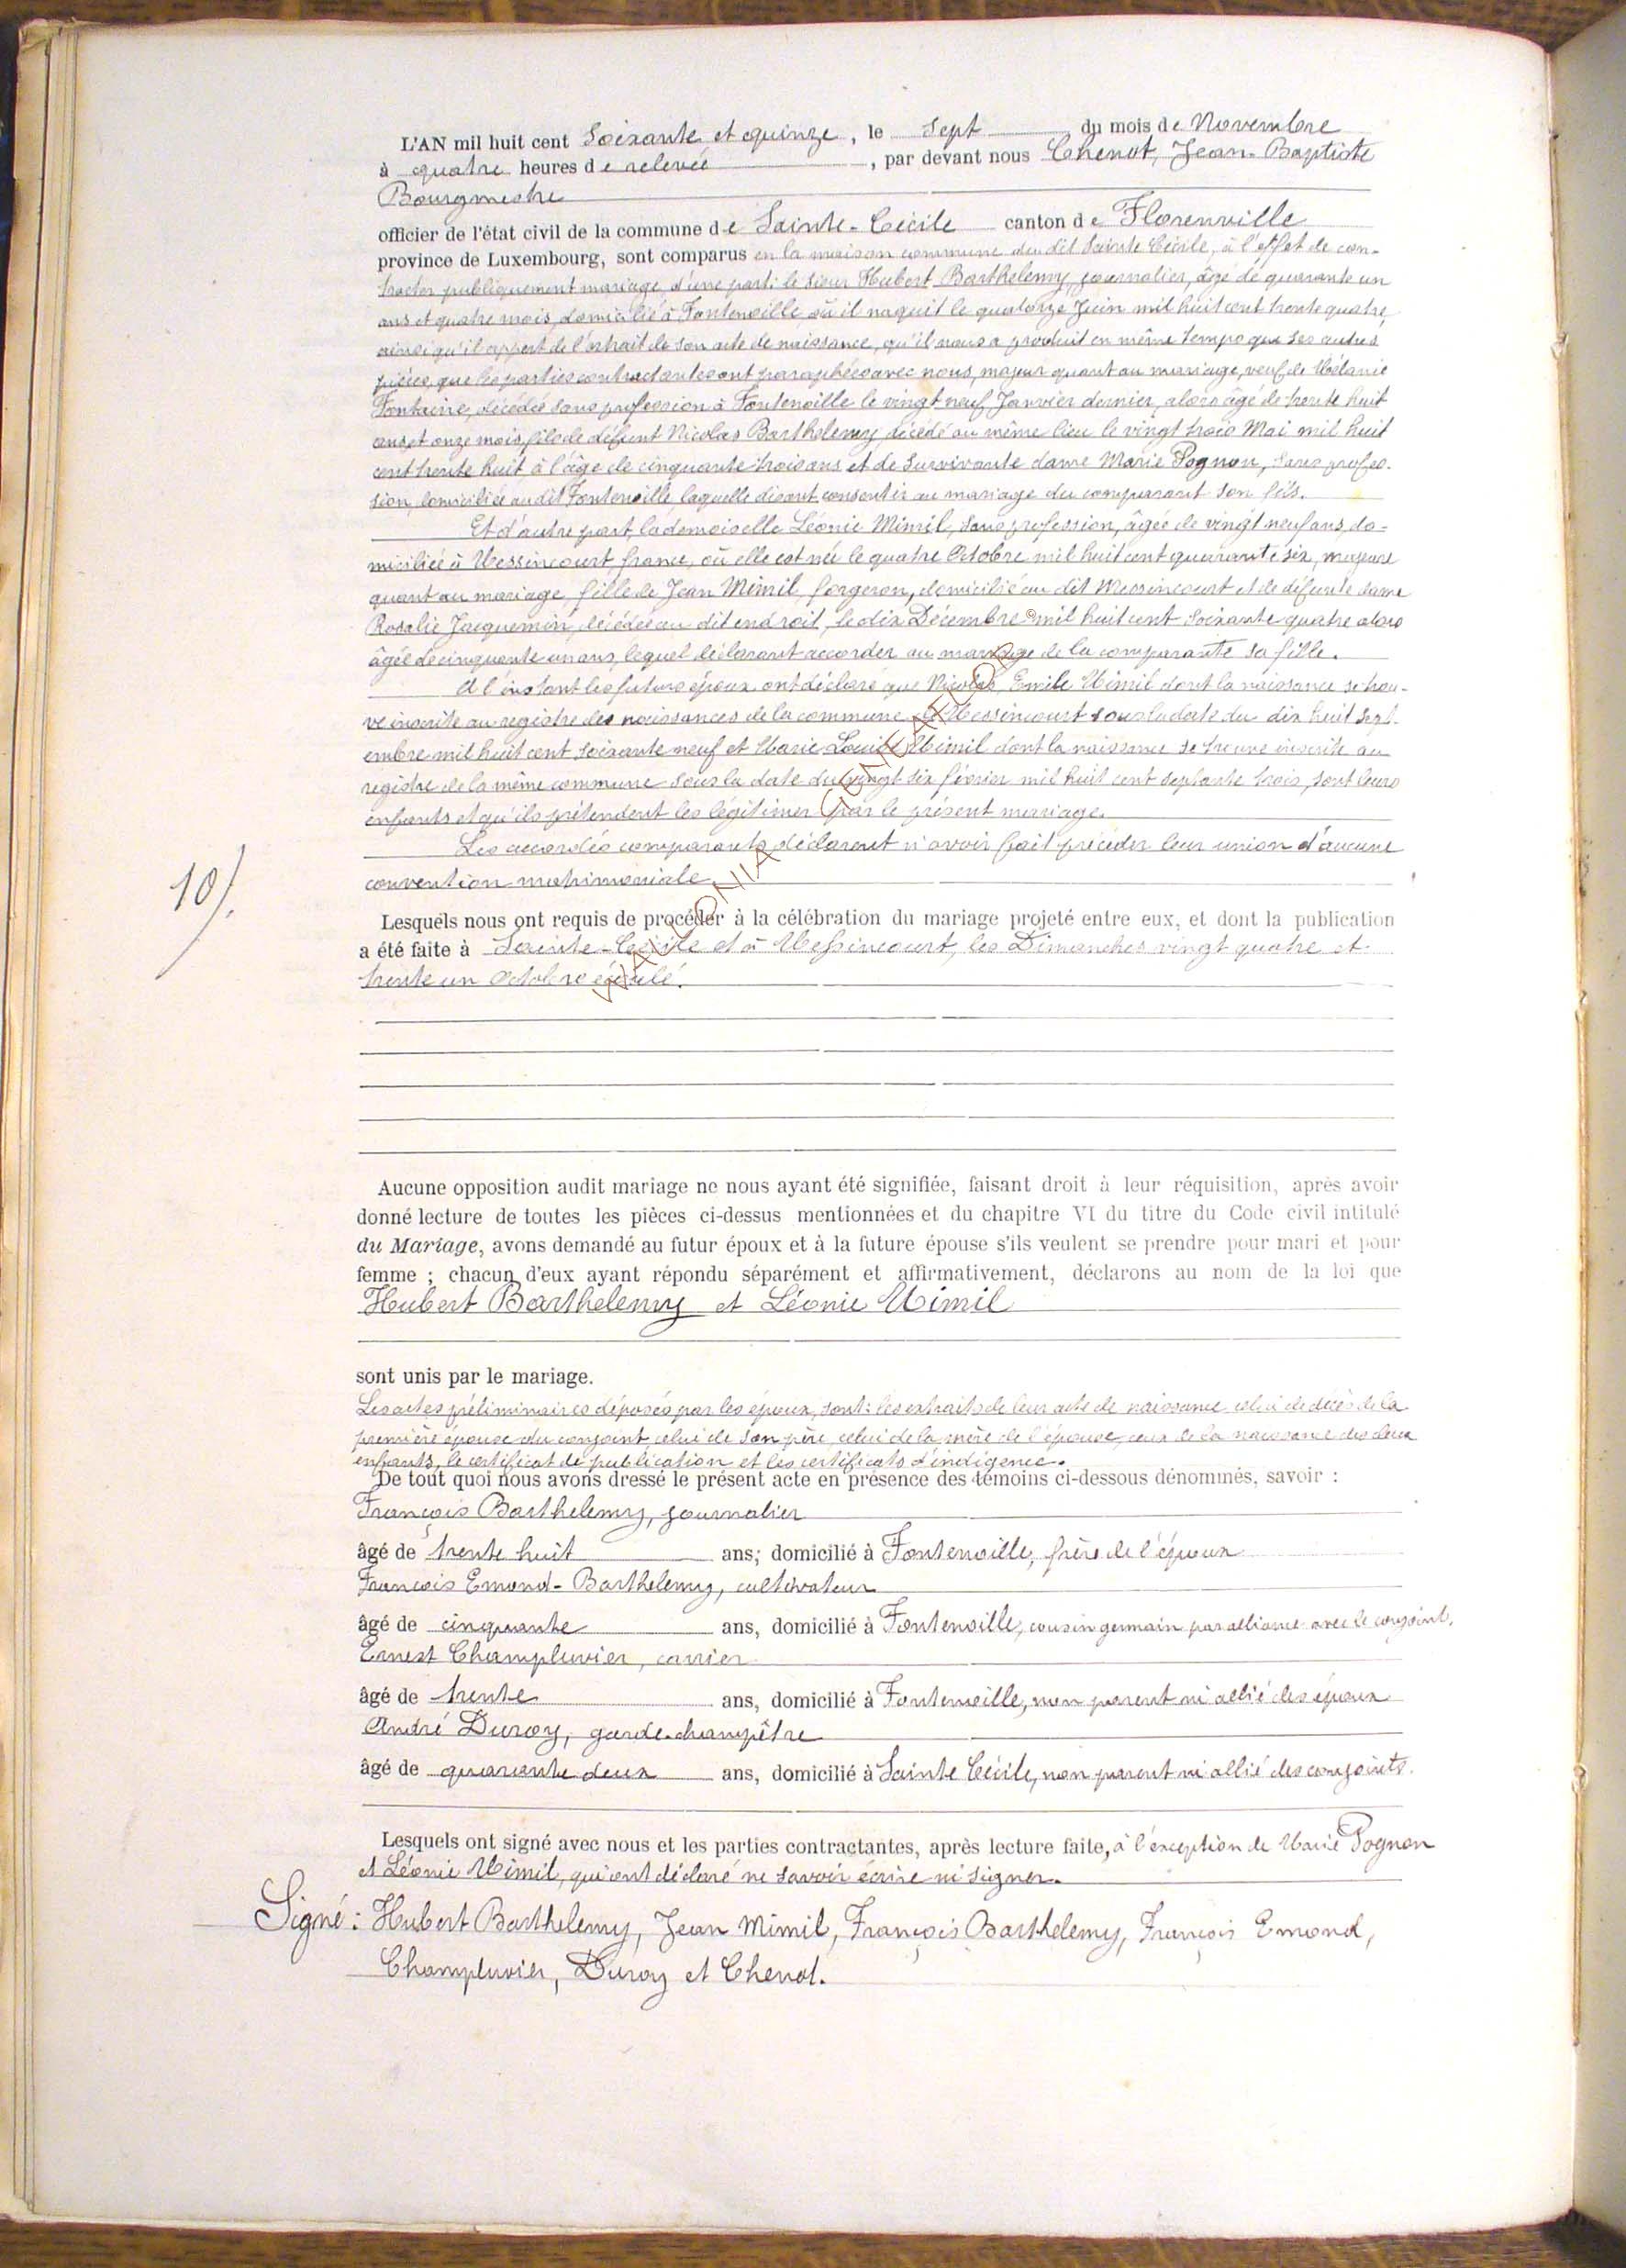 L'AN mil huit cent Soixante et quinze, le Sept du mois de Novembre
à quatre heures de relevée, par devant nous Chenot, Jean-Baptiste
Bourgmestre
officier de l'état civil de la commune de Sainte-Cécile canton de Florenville
province de Luxembourg, sont comparus en la maison commune du dit Sainte Cécile, à l'effet de con-
tracter publiquement mariage, d'une part: le sieur Hubert Barthelemy, journalier, âgé de quarante un
ans et quatre mois, domicilié à Fontenoille où il naquit le quatorze Juin mil huit cent trente quatre,
ainsi qu'il appert de l'extrait de son acte de naissance, qu'il nous a produit en même temps que ses autres
pièces, que les parties contractantes ont paraphées avec nous, majeur quant au mariage, veuf de Mélanie
Fontaine, décédée sans profession à Fontenoille le vingt neuf Janvier dernier, alors âgé de trente huit
ans et onze mois, fils de défunt Nicolas Barthelemy décédé au même lieu le vingt trois Mai mil huit
cent trente huit à l'âge de cinquante trois ans et de survivante dame Marie Pognon, sans profes-
sion, domiciliée au dit Fontenoille, laquelle disant consentir au mariage du comparant son fils.
Et d'autre part, la demoiselle Léonie Mimil, sans profession, âgée de vingt neuf ans, do-
miciliée à Messincourt, france, où elle est née le quatre Octobre mil huit cent quarante six, majeure
quant au mariage, fille de Jean Mimil, forgeron, domicilié au dit Messincourt et de défunte dame
Rosalie Jacquemin, décédée au dit endroit, le dix Décembre mil huit cent soixante quatre alors
âgée de cinquante un ans, lequel déclarant accorder au mariage de la comparante sa fille.
A l'instant les futurs époux ont déclaré que Nicolas, Emile Mimil dont la naissance se trou-
ve inscrite au registre des naissances de la commune de Messincourt sous la date du dix huit Sept-
embre mil huit cent soixante neuf et Marie Louise Mimil dont la naissance se trouve inscrite au
registre de la même commune sous la date du vingt six février mil huit cent septante trois, sont leurs
enfants et qu'ils prétendent les légitimer par le présent mariage.
Les accordés comparants déclarent n'avoir fait précéder leur union d'aucune
convention matrimoniale.
10/.
Lesquels nous ont requis de procéder à la célébration du mariage projeté entre eux, et dont la publication
a été faite à Sainte-Cécile et à Messincourt, les Dimanches vingt quatre et
trente un Octobre écoulé.
© WALLONIA GENEALOGY
Aucune opposition audit mariage ne nous ayant été signifiée, faisant droit à leur réquisition, après avoir
donné lecture de toutes les pièces ci-dessus mentionnées et du chapitre VI du titre du Code civil intitulé
du Mariage, avons demandé au futur époux et à la future épouse s'ils veulent se prendre pour mari et pour
femme ; chacun d'eux ayant répondu séparément et affirmativement, déclarons au nom de la loi que
Hubert Barthelemy et Léonie Mimil
sont unis par le mariage.
Les actes préliminaires déposés par les époux, sont: les extraits de leur acte de naissance celui de décès de la
première épouse du conjoint, celui de son père, celui de la mère de l'épouse, ceux de la naissance des deux
enfants, le certificat de publication et les certificats d'indigence.
De tout quoi nous avons dressé le présent acte en présence des témoins ci-dessous dénommés, savoir :
François Barthelemy, journalier
âgé de trente huit ans; domicilié à Fontenoille, frère de l'époux
François Emond-Barthelemy, cultivateur
âgé de cinquante ans, domicilié à Fontenoille, cousin germain par alliance avec le conjoint.
Ernest Champluvier, carrier
âgé de trente ans, domicilié à Fontenoille, non parent ni allié des époux
André Duroy, garde-champêtre
âgé de quarante deux ans, domicilié à Sainte Cécile, non parent ni allié des conjoints.
Lesquels ont signé avec nous et les parties contractantes, après lecture faite, à l'exception de Marie Pognon
et Léonie Mimil, qui ont déclaré ne savoir écrire ni signer.
Signé: Hubert Barthelemy, Jean Mimil, François Barthelemy, François Emond,
Champluvier, Duroy et Chenot.